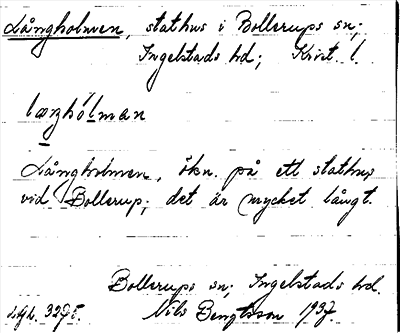 Långholmen, stathus i Bollerups sn;
Ingelstads hd; Krist. l.
laŋhólman
Långholmen, ökn. på ett stathus
vid Bollerup; det är mycket långt.
Bollerups sn; Ingelstads hd.
Nils Bengtsson 1937.